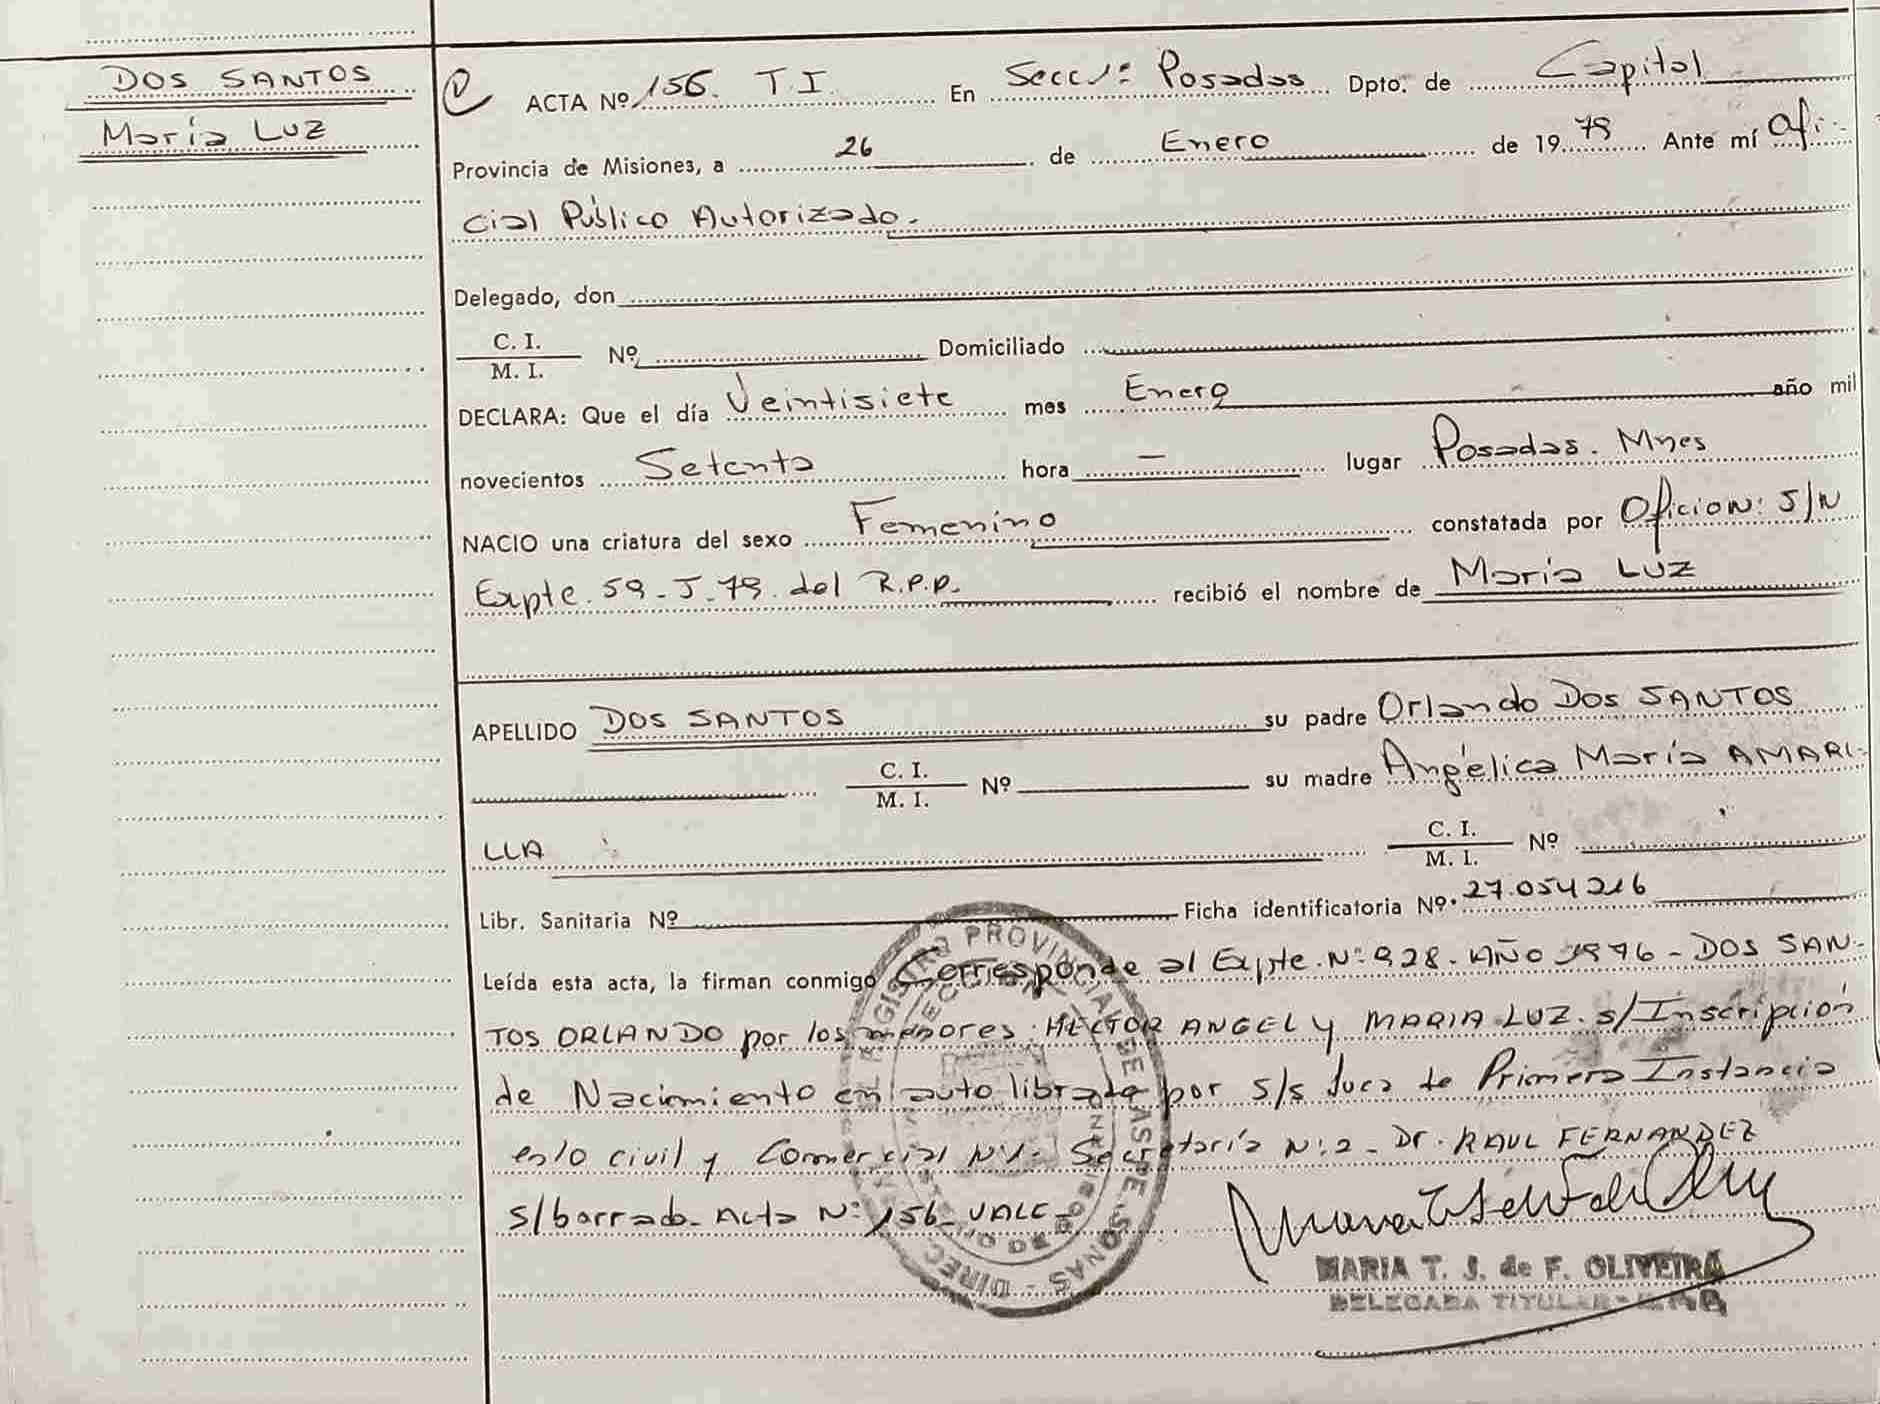 DOS SANTOS
María LUZ
ACTA Nº 156. T.I. En Secc 1ª Posadas Dpto. de Capital
Provincia de Misiones, a 26 de Enero de 1979 Ante mí Ofi-
cial Público Autorizado.
Delegado, don
C. I.
M. I. Nº Domiciliado
DECLARA: Que el día Veintisiete mes Enero año mil
novecientos Setenta hora — lugar Posadas. Mnes
NACIO una criatura del sexo Femenino constatada por Oficio N: S/N
Expte. 59-J-79. del R.P.P. recibió el nombre de María LUZ
APELLIDO DOS SANTOS su padre Orlando DOS SANTOS
C. I.
M. I. Nº su madre Angélica María AMARI-
LLA C. I.
M. I. Nº
Libr. Sanitaria Nº Ficha identificatoria Nº 27.054216
Leída esta acta, la firman conmigo Corresponde al Expte. Nº 928. AÑO 1976 - DOS SAN-
TOS ORLANDO por los menores: HECTOR ANGEL y MARIA LUZ. s/Inscripción
de Nacimiento en auto librado por S/S Juez de Primera Instancia
en lo civil y Comercial Nº1. Secretaría Nº 2 - Dr. RAUL FERNANDEZ
s/borrado- Acta Nº 156- VALE-
MARIA T. J. de F. OLIVEIRA
DELEGADA TITULAR